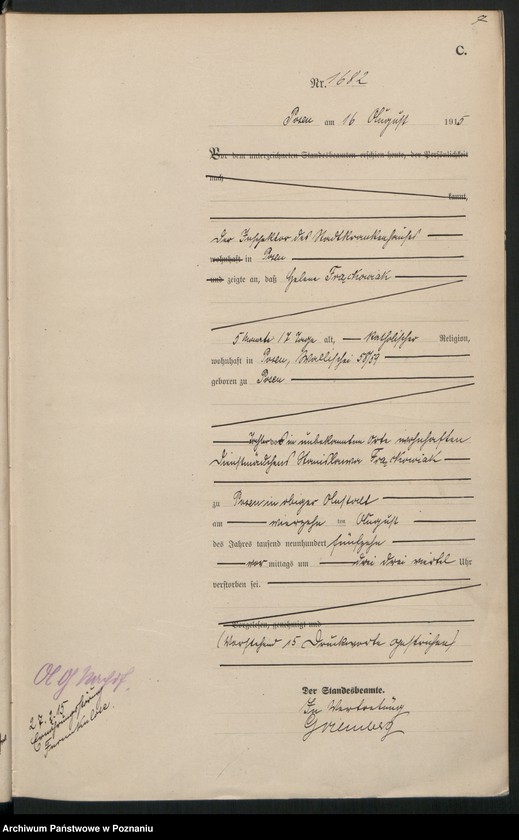 C.
Nr. 1682
Posen am 16 August 1915
Vor dem unterzeichneten Standesbeamten erschien heute, der Persönlichkeit
nach
kannt,
Der Inspektor des Stadtkrankenhauses
wohnhaft in Posen
und zeigte an, daß Helene Frąckowiak
5 Monate 17 Tage alt, katholischer Religion,
wohnhaft in Posen, Wallischei 58/59
geboren zu Posen
Tochter der in unbekanntem Orte wohnhaften
Dienstmädchens Stanislawa Frąckowiak
zu Posen in obiger Anstalt
am vierzehn ten August
des Jahres tausend neunhundert fünfzehn
vor mittags um drei drei viertel Uhr
verstorben sei.
Vorgelesen, genehmigt und
(Vorstehend 15 Druckworte gestrichen)
Der Standesbeamte.
In Vertretung
27. 2. 15
Archiwum Państwowe w Poznaniu